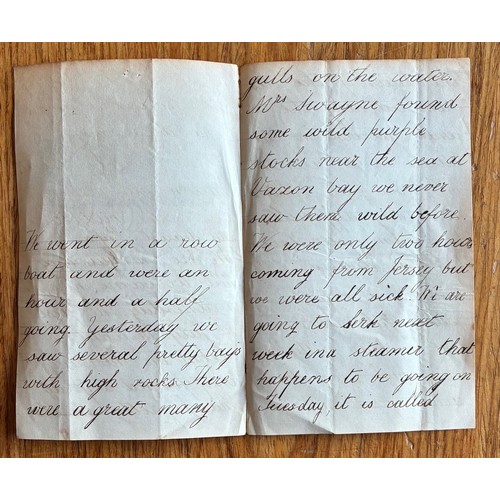 We went in a row
boat and were an
hour and a half
going. Yesterday we
saw several pretty bays
with high rocks. There
were a great many
gulls on the water.
Mrs Swayne found
some wild purple
stocks near the sea at
Vazon bay we never
saw them wild before.
We were only two hours
coming from Jersey but
we were all sick. We are
going to Serk next
week in a steamer that
happens to be going on
Tuesday, it is called